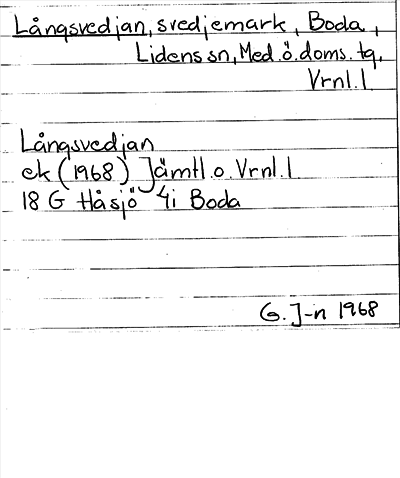 Långsvedjan, svedjemark, Boda,
Lidens sn, Med. ö. doms. tg,
Vrnl. l.
Långsvedjan
ek (1968) Jämtl. o. Vrnl. l
18 G Håsjö 4i Boda
G. J-n 1968